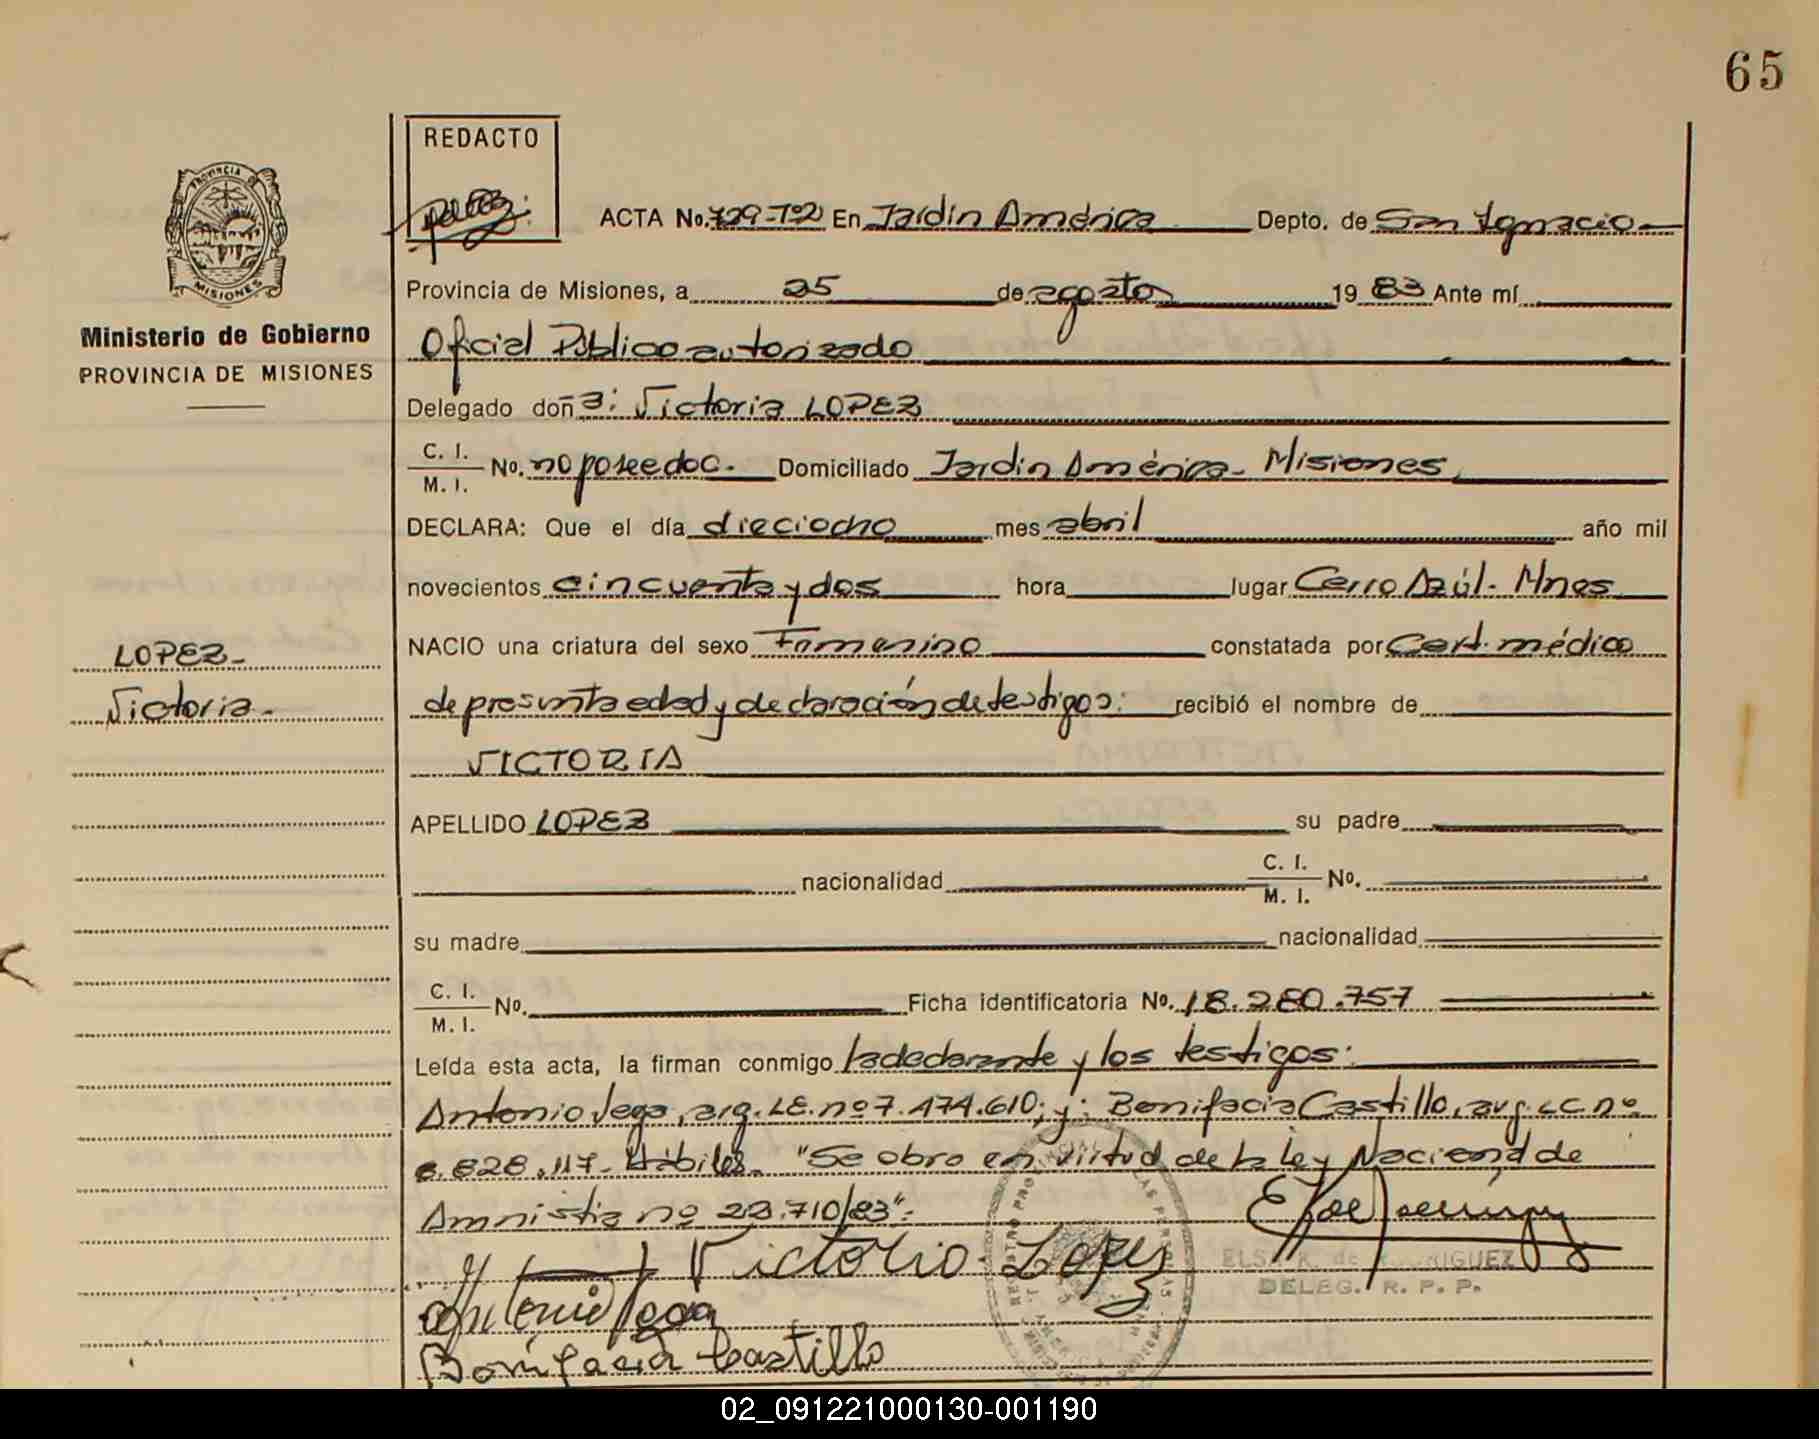 65
REDACTO
ACTA No. 729-Tº2 En Jardín América Depto. de San Ignacio
PROVINCIA DE
MISIONES
Provincia de Misiones, a 25 de agosto 1983 Ante mí
Ministerio de Gobierno
PROVINCIA DE MISIONES
Oficial Público autorizado
Delegado doñ-a: Victoria LOPEZ
C. I.
M. I. No. no posee doc. Domiciliado Jardín América- Misiones
DECLARA: Que el día dieciocho mes abril año mil
novecientos cincuenta y dos hora lugar Cerro Azúl- Mnes
NACIO una criatura del sexo Femenino constatada por Cert. médico
LOPEZ-
Victoria-
de presunta edad y declaración de testigos: recibió el nombre de
VICTORIA
APELLIDO LOPEZ su padre
nacionalidad C. I.
M. I. No.
su madre nacionalidad
C. I.
M. I. No. Ficha identificatoria No. 18.280.757
Leída esta acta, la firman conmigo la declarante y los testigos:
Antonio Vega, arg. LE. nº 7.474.610; y: Bonifacia Castillo, arg. LC nº
6.828.117- Hábiles- "Se obro en virtud de la Ley Nacional de
Amnistía nº 22.710/83":
Victoria Lopez
Antonio Vega
Bonifacia Castillo
ELSA R. de RODRIGUEZ
DELEG. R. P. P.
02_091221000130-001190